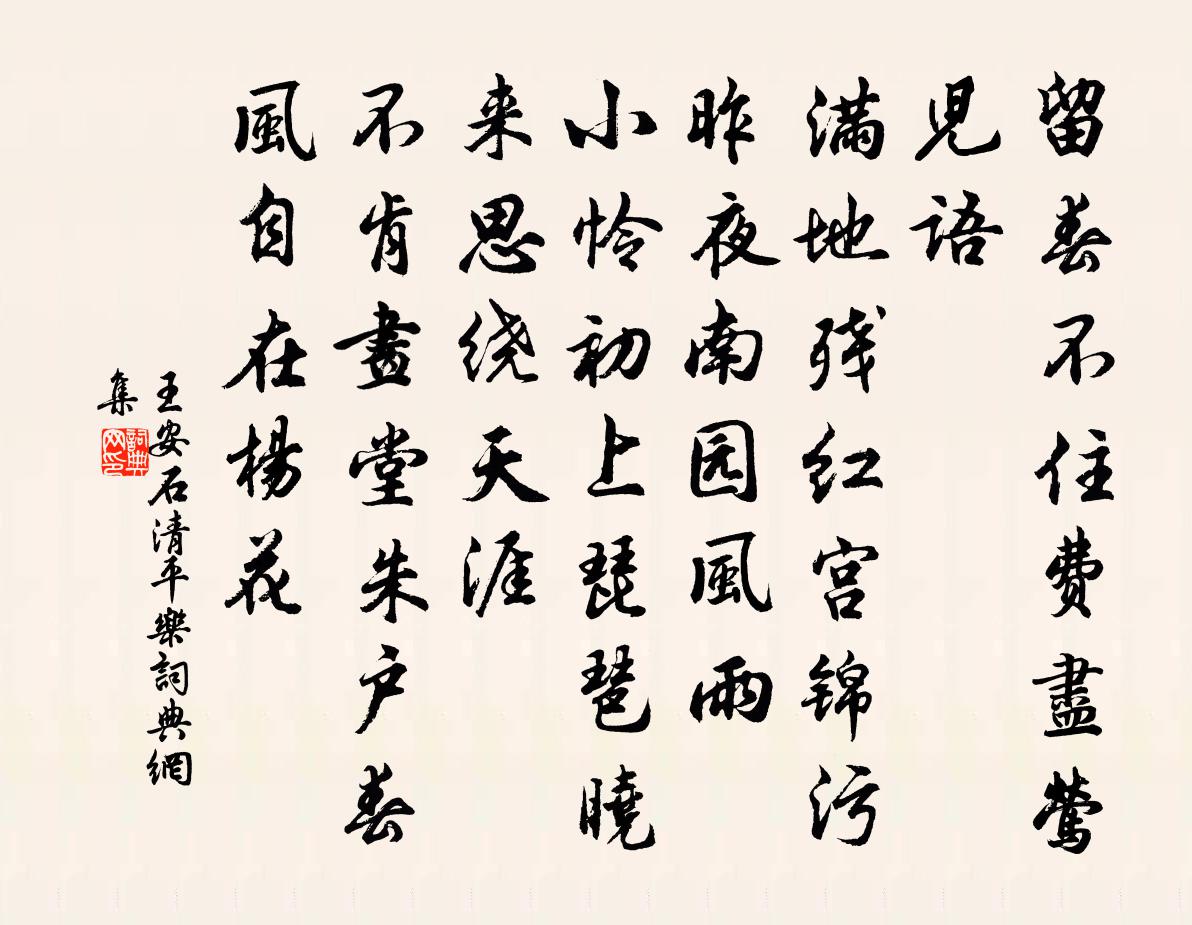 留春不住費盡鶯
兒語
满地残红宫锦污
昨夜南园風雨
小怜初上琵琶曉
来思绕天涯
不肯畫堂朱户春
風自在楊花
王安石清平樂詞典網
集
詞典
网印